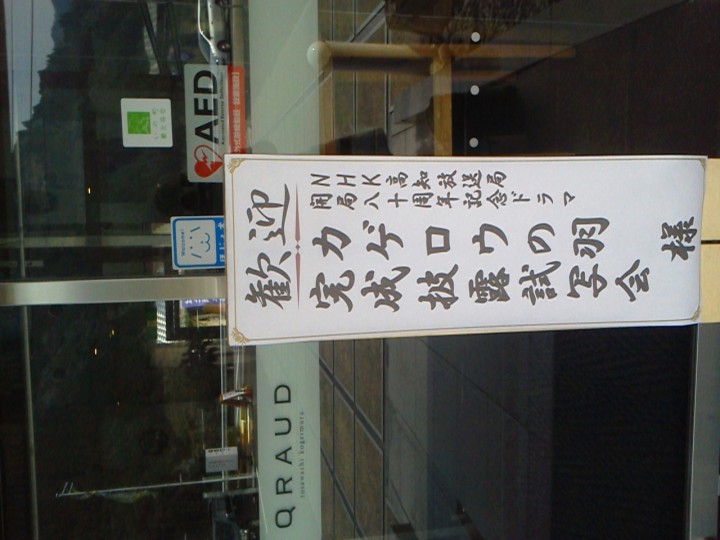 歓迎
NHK高知放送局
開局八十周年記念ドラマ
カゲロウの羽
完成披露試写会
様
AED
QRAUD